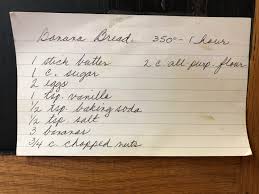 Banana Bread. 350° - 1 hour
1 stick butter 2 c. all purp. flour
1 c. sugar
2 eggs
1 tsp. vanilla
1/2 tsp. baking soda
1/2 tsp. salt
3 bananas
3/4 c chopped nuts